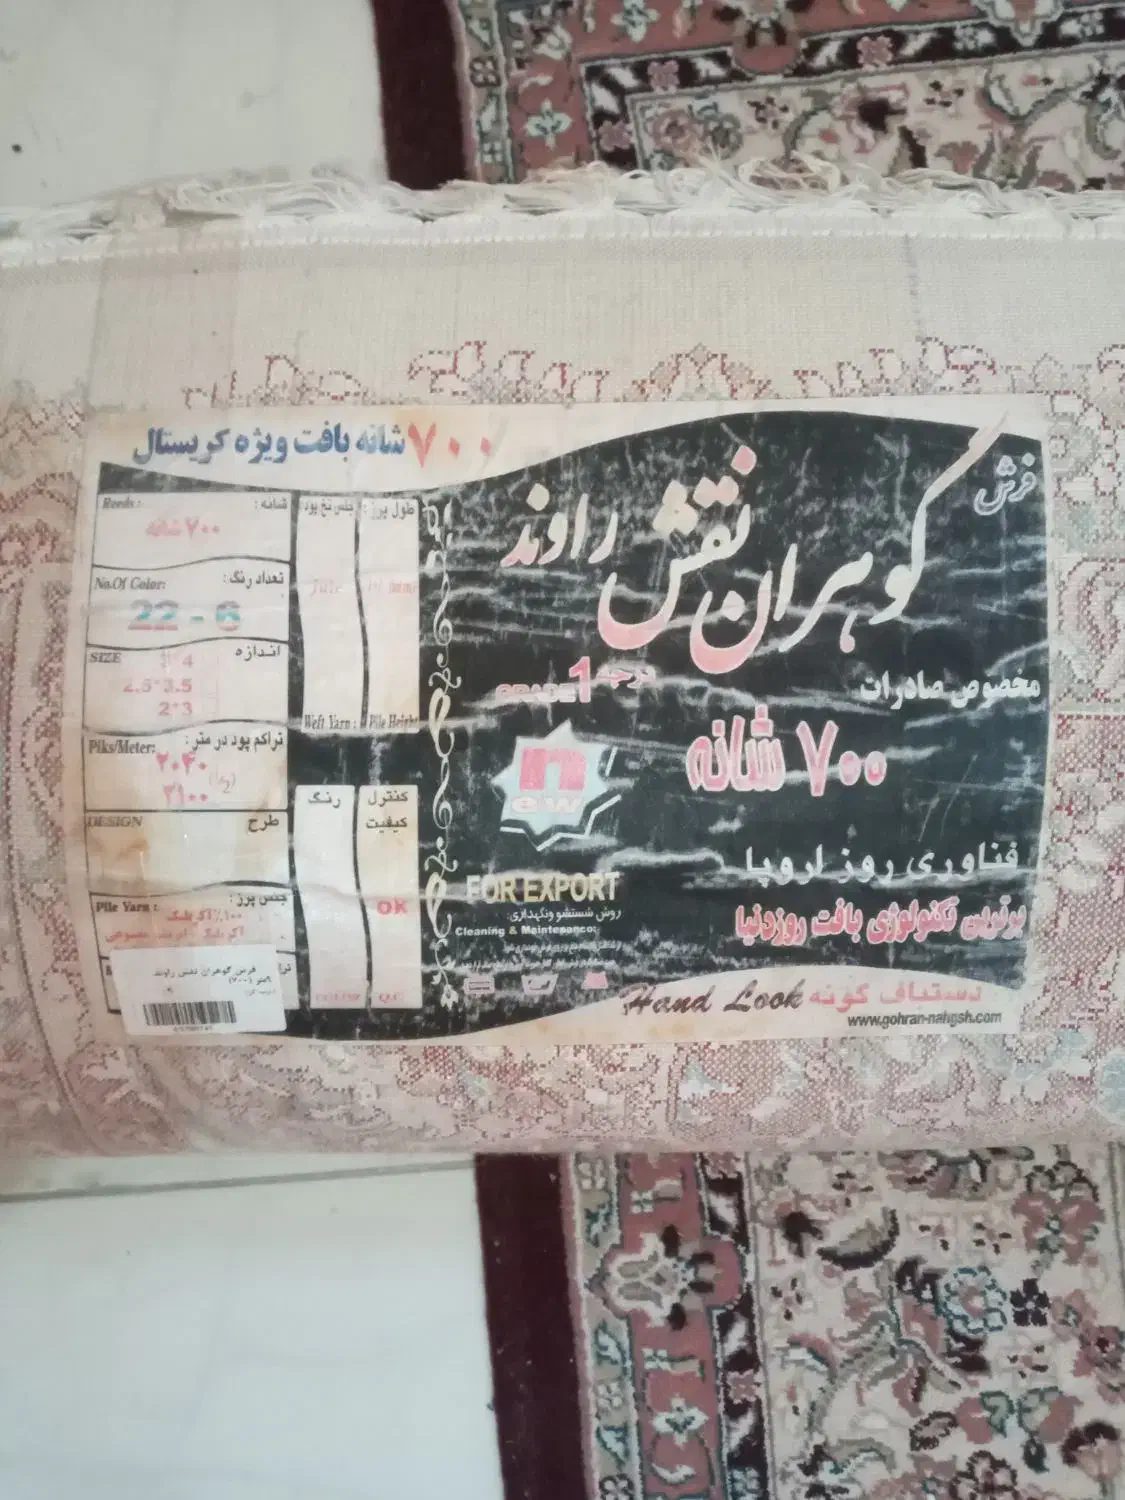 ۷۰۰ شانه بافت ویژه کریستال
فرش
گوهران نقش راوند
مخصوص صادرات
درجه 1 GRADE
۷۰۰ شانه
new
فناوری روز اروپا
برترین تکنولوژی بافت روز دنیا
FOR EXPORT
روش شستشو و نگهداری:
Cleaning & Maintenance:
دستباف گونه Hand Look
www.gohran-nahgsh.com
Reeds: شانه:
۷۰۰ شانه
No.Of Color: تعداد رنگ:
22 - 6
SIZE اندازه
3*4
2.5*3.5
2*3
Piks/Meter: تراکم پود در متر:
DESIGN طرح
Pile Yarn: جنس پرز:
۱۰۰٪ اکریلیک
جنس نخ پود:
Jute
Weft Yarn:
طول پرز:
Pile Height
رنگ
COLOR
کنترل کیفیت
OK
Q.C
فرش گوهران نقش راوند